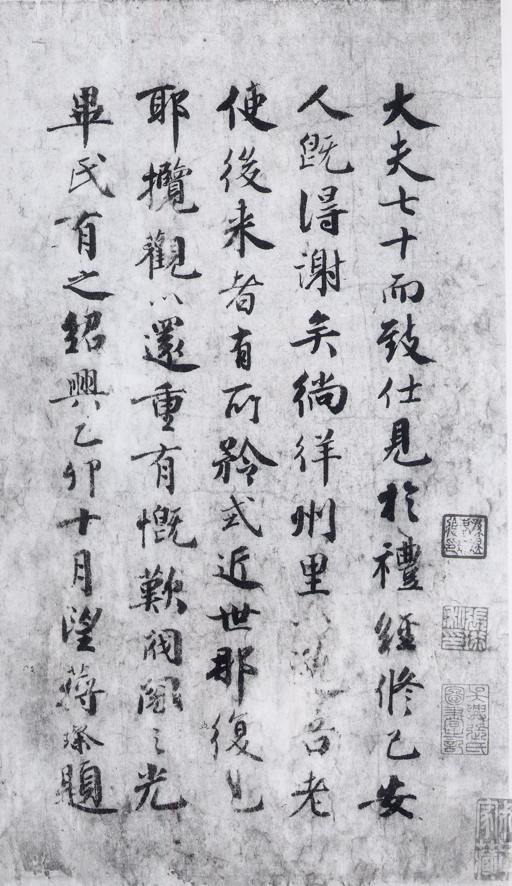 大夫七十而致仕見於禮經修己安
人既得謝矣徜徉州里以老
使後来者有所矜式近世那復見
耶攬觀以還重有慨歎閥閱之光
畢氏有之紹興乙卯十月望蔣璨題